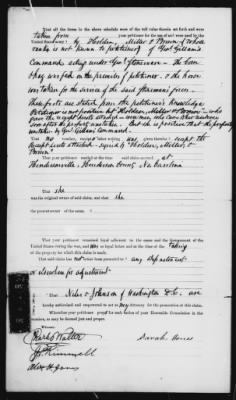 That all the items in the above schedule were of the full value therein set forth and were
taken from your petitioner for the use of and were used by the
United States army: by Holden, Miller & Brown (of whose
ranks is not known to petitioner) of Genl Gillam's
Command, acting under Genl Stoneman - the corn
they was fed on the premises of petitioner & the horse
was taken for the service of the said Stoneman's forces.
These facts are stated from the petitioner's knowledge
Petitioner is not
gave the receipt hereto attached
But she is positive that the property
was taken by Genl Gillam's command.
That no voucher, receipt or other writing was given therefor; except the
receipt hereto attached - signed by "Holden, Miller, &
Brown"
That your petitioner resided at the time said claim accrued at
Hendersonville, Henderson County, No. Carolina
That she
was the original owner of said claim, and that she
the present owner of the same.
That your petitioner remained loyally adherent to the cause and the Government of the
United States during the war, and was so loyal before and at the time of the taking
of the property for which this claim is made.
That said claim has not been presented to any Department
or elsewhere for adjustment
That Niles & Johnson of Washington D.C. are
hereby authorized and empowered to act as my Attorney for the prosecution of this claim.
Wherefore your petitioner prays for such action of your Honorable Commission in the
premises, as may be deemed just and proper.
Witnesses:
Sarah Jones
Alex H Jones